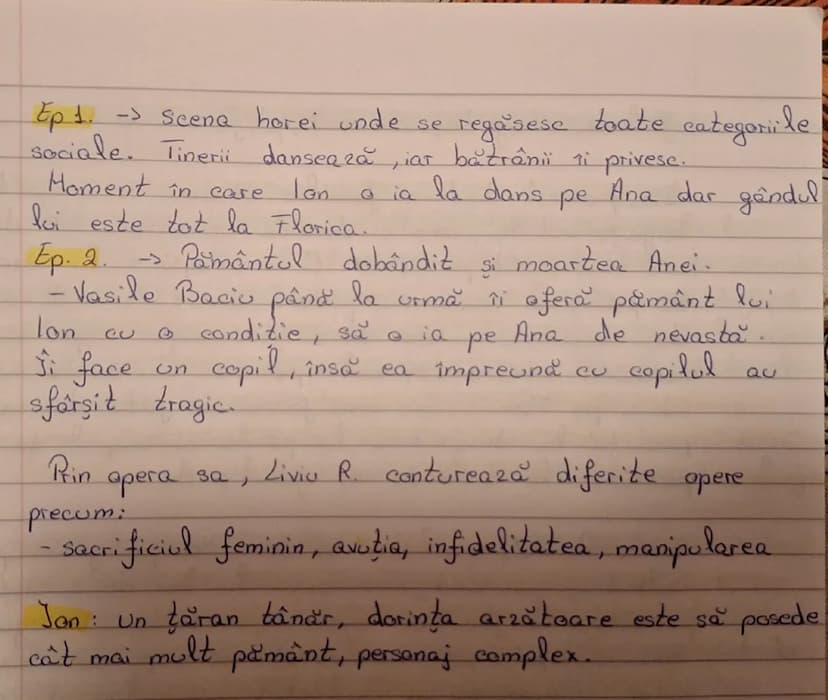 Ep 1. -> scena horei unde se regăsesc toate categoriile
sociale. Tinerii dansează, iar bătrânii îi privesc.
Moment în care Ion o ia la dans pe Ana dar gândul
lui este tot la Florica.
Ep. 2. -> Pământul dobândit și moartea Anei.
- Vasile Baciu până la urmă îi oferă pământ lui
Ion cu o condiție, să o ia pe Ana de nevastă.
Îi face un copil, însă ea împreună cu copilul au
sfârșit tragic.
Prin opera sa, Liviu R. conturează diferite opere
precum:
- sacrificiul feminin, avuția, infidelitatea, manipularea
Ion: un țăran tânăr, dorința arzătoare este să posede
cât mai mult pământ, personaj complex.